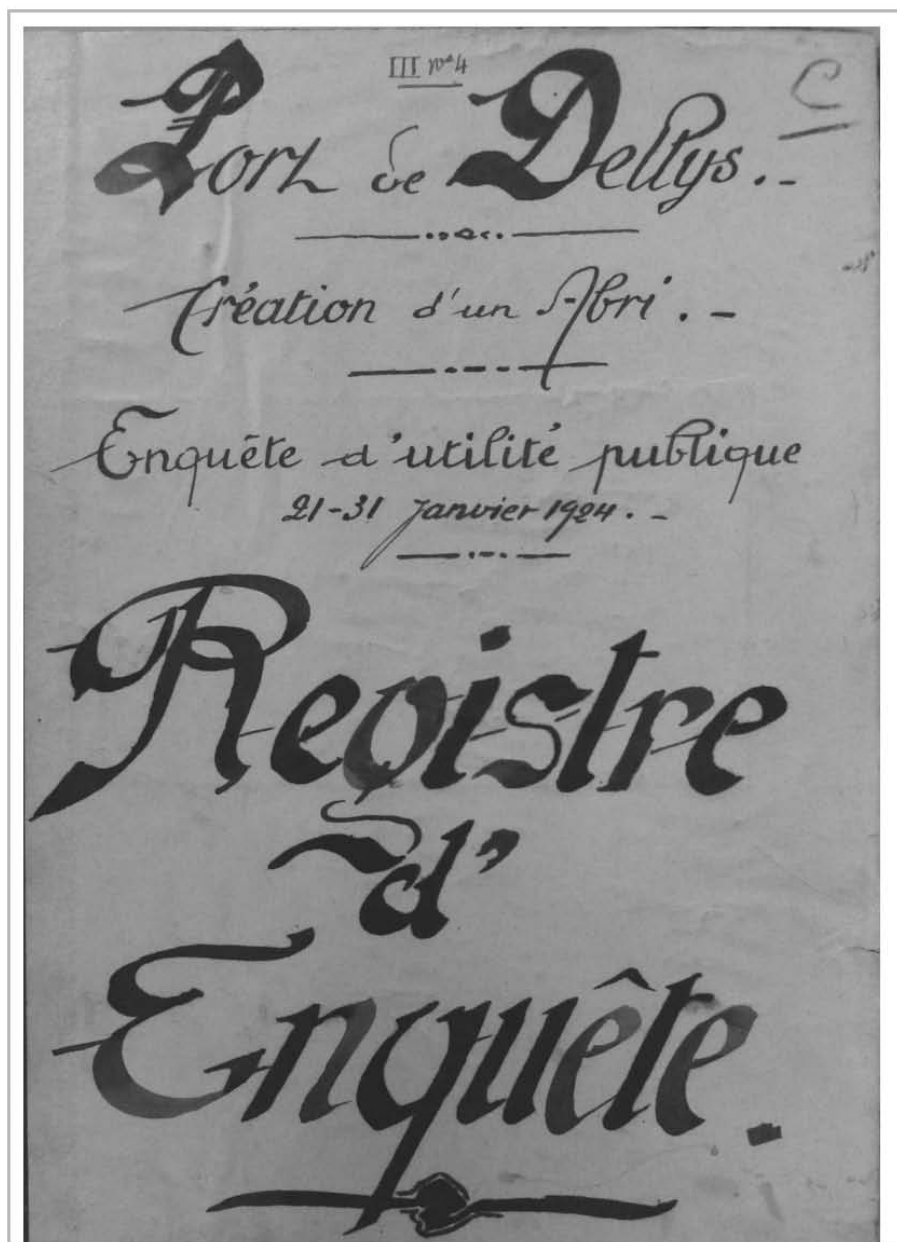 III n° 4
C
Port de Dellys. -
Création d'un Abri. -
Enquête d'utilité publique
21-31 Janvier 1924. -
Registre
d'
Enquête.